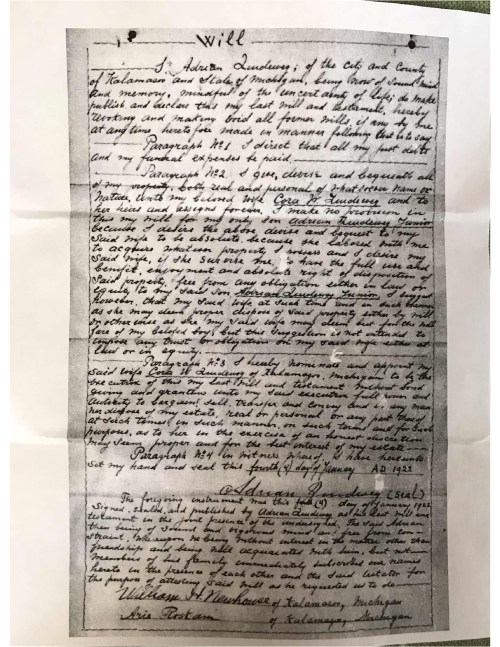 Will
I, Adrian Lindeweg; of the City and County
of Kalamazoo and State of Michigan, being now of sound mind
and memory, mindful of the uncertainty of life; do make
publish and declare this my last will and testament, hereby
revoking and making void all former wills, if any by me
at any time heretofore made in manner following that is to say
Paragraph No 1 I direct that all my just debts
and my funeral expenses be paid
Paragraph No 2. I give, devise and bequeath all
of my property, both real and personal of whatsoever name or
Nature, unto my beloved wife Cora W. Lindeweg and to
her heirs and assigns forever, I make no provision in
this my will for my only son Adrian Lindeweg Junior
because I desire the above devise and bequest to my
Said wife to be absolute, because she labored with me
to acquire whatever property I possess and I desire my
Said wife, if she survive me, to have the full use and
benefit, enjoyment and absolute right of disposition of
Said property, free from any obligation either in law or
equity to my Said Adrian Lindeweg Junior I suggest
however, that my Said wife at such time and in such manner
as she may deem proper dispose of Said property either by will
or otherwise as she my Said wife may deem best for the wel
fare of my beloved boy, but this suggestion is not intended to
impose any trust or obligation on my Said wife either at
law or in equity.
Paragraph No 3 I hereby nominate and appoint my
said wife Cora W. Lindeweg of Kalamazoo, Michigan, to be the
executrix of this my last will and testament without bond
giving and granting unto my Said executrix full power and
authority to bargain sell, transfer and convey and in any man
ner dispose of my estate, real or personal or any part thereof
at such times, in such manner, on such terms and for such
purpose, as to her in the exercise of an honest discretion
may seem proper and for the best interest of my estate
Paragraph No 4 in witness whereof, I have hereunto
set my hand and seal this fourth (4) day of January AD 1922
Adrian Lindeweg (Seal)
The foregoing instrument was this (4) day of January, 1922
Signed, sealed, and published by Adrian Lindeweg as his last will and
testament in the joint presence of the undersigned, The said Adrian
then being of sound and vigorous mind and free from con-
straint; Whereupon we being without interest in the matter other than
friendship and being well acquainted with him, but not
members of his family immediately subscribed our names
hereto in the presence of each other and the said testator for
the purpose of attesting Said will as he requested us to do
William H. Newhouse of Kalamazoo, Michigan
Arie of Kalamazoo, Michigan